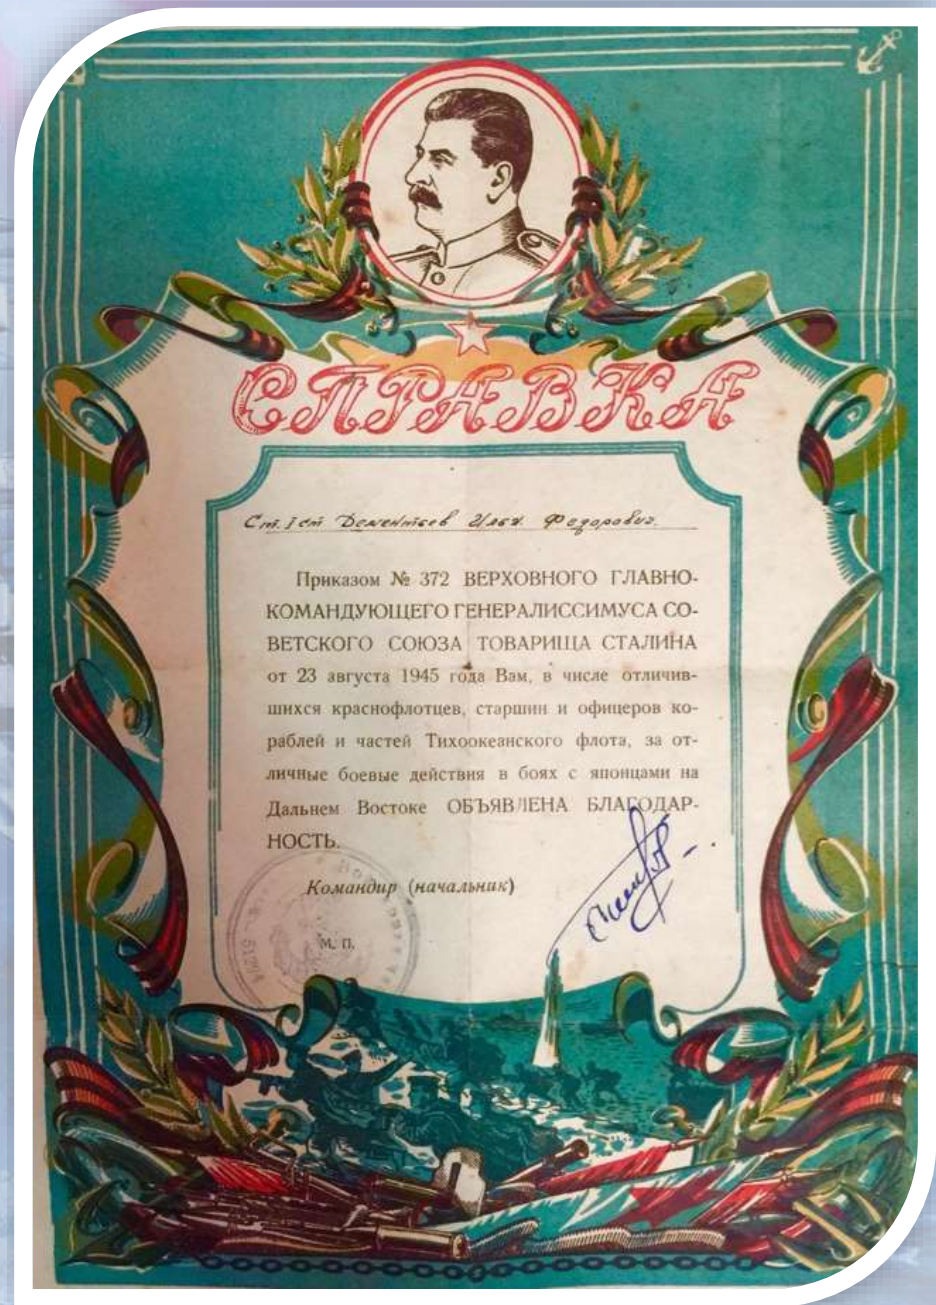 СПРАВКА
Ст. I ст Дементьев Илья Федорович.
Приказом № 372 ВЕРХОВНОГО ГЛАВНО-
КОМАНДУЮЩЕГО ГЕНЕРАЛИССИМУСА СО-
ВЕТСКОГО СОЮЗА ТОВАРИЩА СТАЛИНА
от 23 августа 1945 года Вам, в числе отличив-
шихся краснофлотцев, старшин и офицеров ко-
раблей и частей Тихоокеанского флота, за от-
личные боевые действия в боях с японцами на
Дальнем Востоке ОБЪЯВЛЕНА БЛАГОДАР-
НОСТЬ.
Командир (начальник)
М. П.